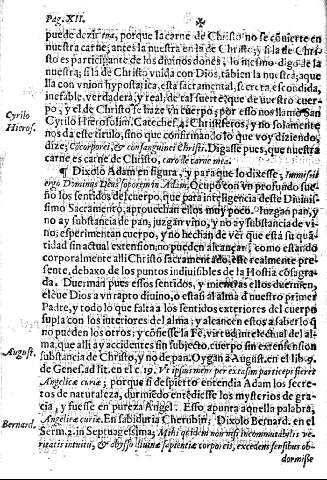 Pag. XII.
puede dezir ina, porque la carne de Christo no se cõuierte en
nuestra carne, antes la nuestra en la de Christo; y si la de Chri
sto es participante de los diuinos dones, lo mesmo digo de la
nuestra; si la de Christo vnida con Dios, tãbien la nuestra; aque
lla con vnion hypostatica, esta sacramental, secreta, escondida,
inefable, verdadera, y real; de tal suerte, que de nuestro cuer-
po, y el de Christo se haze vn cuerpo; por esso nos llamò San
Cyrilo
Hieros.
Cyrilo Hierosolim. Catechес. 4. Christiferos, y no solamente
nos da este titulo, sino que confirmando lo que voy diziendo,
dize; Cõcorporei, & consanguinei Christi. Digasse pues, que nuestra
carne es carne de Christo, caro de carne mea.
¶ Dixolo Adam en figura, y para que lo dixesse; Immisit
ergo Dominus Deus soporem in Adam, Ocupò con vn profundo sue-
ño los sentidos del cuerpo, que para inteligencia deste Diuinis-
simo Sacramento, aprouechan ellos muy poco. Iuzgan pan, y
no ay substancia de pan, juzgan vino, y no ay substancia de vi
no; esperimentan cuerpo, y no hechan de ver que està su quã-
tidad sin actual extension, no pueden alcançar, como estando
corporalmente alli Christo sacramentado, este realmente pre-
sente, debaxo de los puntos indiuisibles de la Hostia cõsagra-
da. Duerman pues essos sentidos, y mientras ellos duermen,
eleue Dios a vn rapto diuino, o estasi al alma d̃ nuestro primer
Padre, y todo lo que falta a los sentidos exteriores del cuerpo
supla con los interiores del alma; y alcancen essos a saber lo q̃
no pueden los otros; y cõfiesse la Fè, virtud intelectual del al-
ma, que alli ay accidentes sin subjecto, cuerpo sin extension sin
August.
substancia de Christo, y no de pan. Oygan a August. en el lib. 9.
de Genes. ad lit. en el c. 19. Vt ipsum mens per extasim particeps fieret
Angelicæ curiæ; porque si despierto entendia Adam los secre-
tos de naturaleza, durmiẽdo entẽdiesse los mysterios de gra-
cia, y fuesse en pureza Angel. Esso apunta aquella palabra,
Bernard.
Angelicæ curiæ. En sabiduria Cherubin; Dixolo Bernard. en el
Serm. 2. in Septuagessima; Mihi quidem non nisi incommutabilis ve-
ritatis intuitu, & abysso diuinæ sapientiæ corporeis, excedens sensibus ob-
dormisse